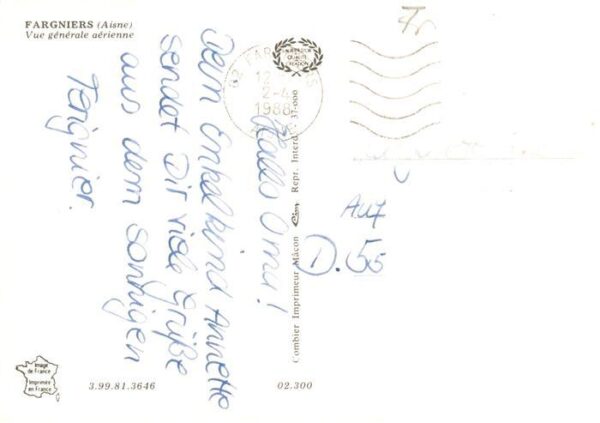 FARGNIERS (Aisne)
Vue générale aérienne
Hallo Omi!
Dein Enkelkind Annette
sendet Dir viele Grüße
aus dem sonnigen
Tergnier.
02 FAR
12
2-4
1988
Combier Imprimeur Mâcon Cim Repr. Interdite 37-000
Auf
D. 55
Image
de France
Imprimée
en France
3.99.81.3646
02.300